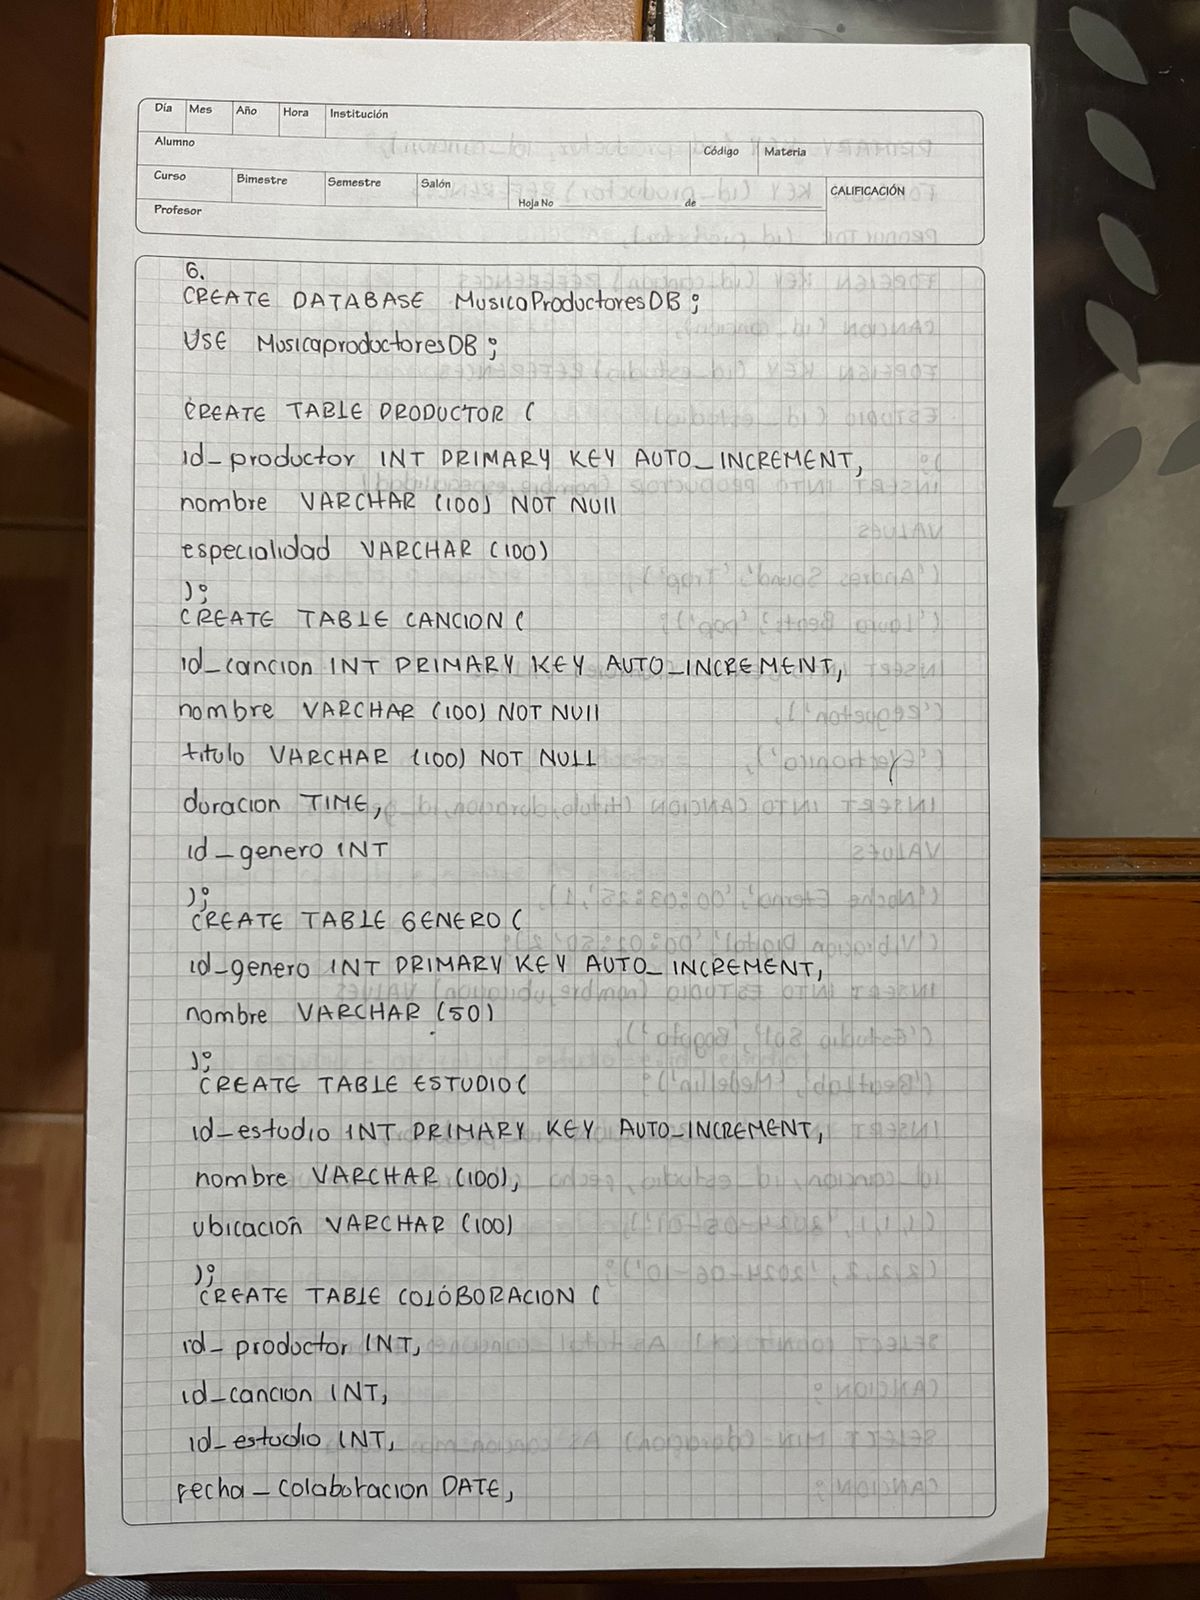 Día Mes Año Hora Institución
Alumno Código Materia
Curso Bimestre Semestre Salón Hoja No de CALIFICACIÓN
Profesor
6.
CREATE DATABASE MusicaProductoresDB;
USE MusicaproductoresDB;
CREATE TABLE PRODUCTOR (
id_productor INT PRIMARY KEY AUTO_INCREMENT,
nombre VARCHAR (100) NOT NUll
especialidad VARCHAR (100)
);
CREATE TABLE CANCION (
id_cancion INT PRIMARY KEY AUTO_INCREMENT,
nombre VARCHAR (100) NOT NUll
titulo VARCHAR (100) NOT NULL
duracion TIME,
id_genero INT
);
CREATE TABLE GENERO (
id_genero INT PRIMARY KEY AUTO_INCREMENT,
nombre VARCHAR (50)
);
CREATE TABLE ESTUDIO (
id_estudio INT PRIMARY KEY AUTO_INCREMENT,
nombre VARCHAR (100),
ubicación VARCHAR (100)
);
CREATE TABLE COLÓBORACION (
id_productor INT,
id_cancion INT,
id_estudio INT,
fecha_colaboracion DATE,